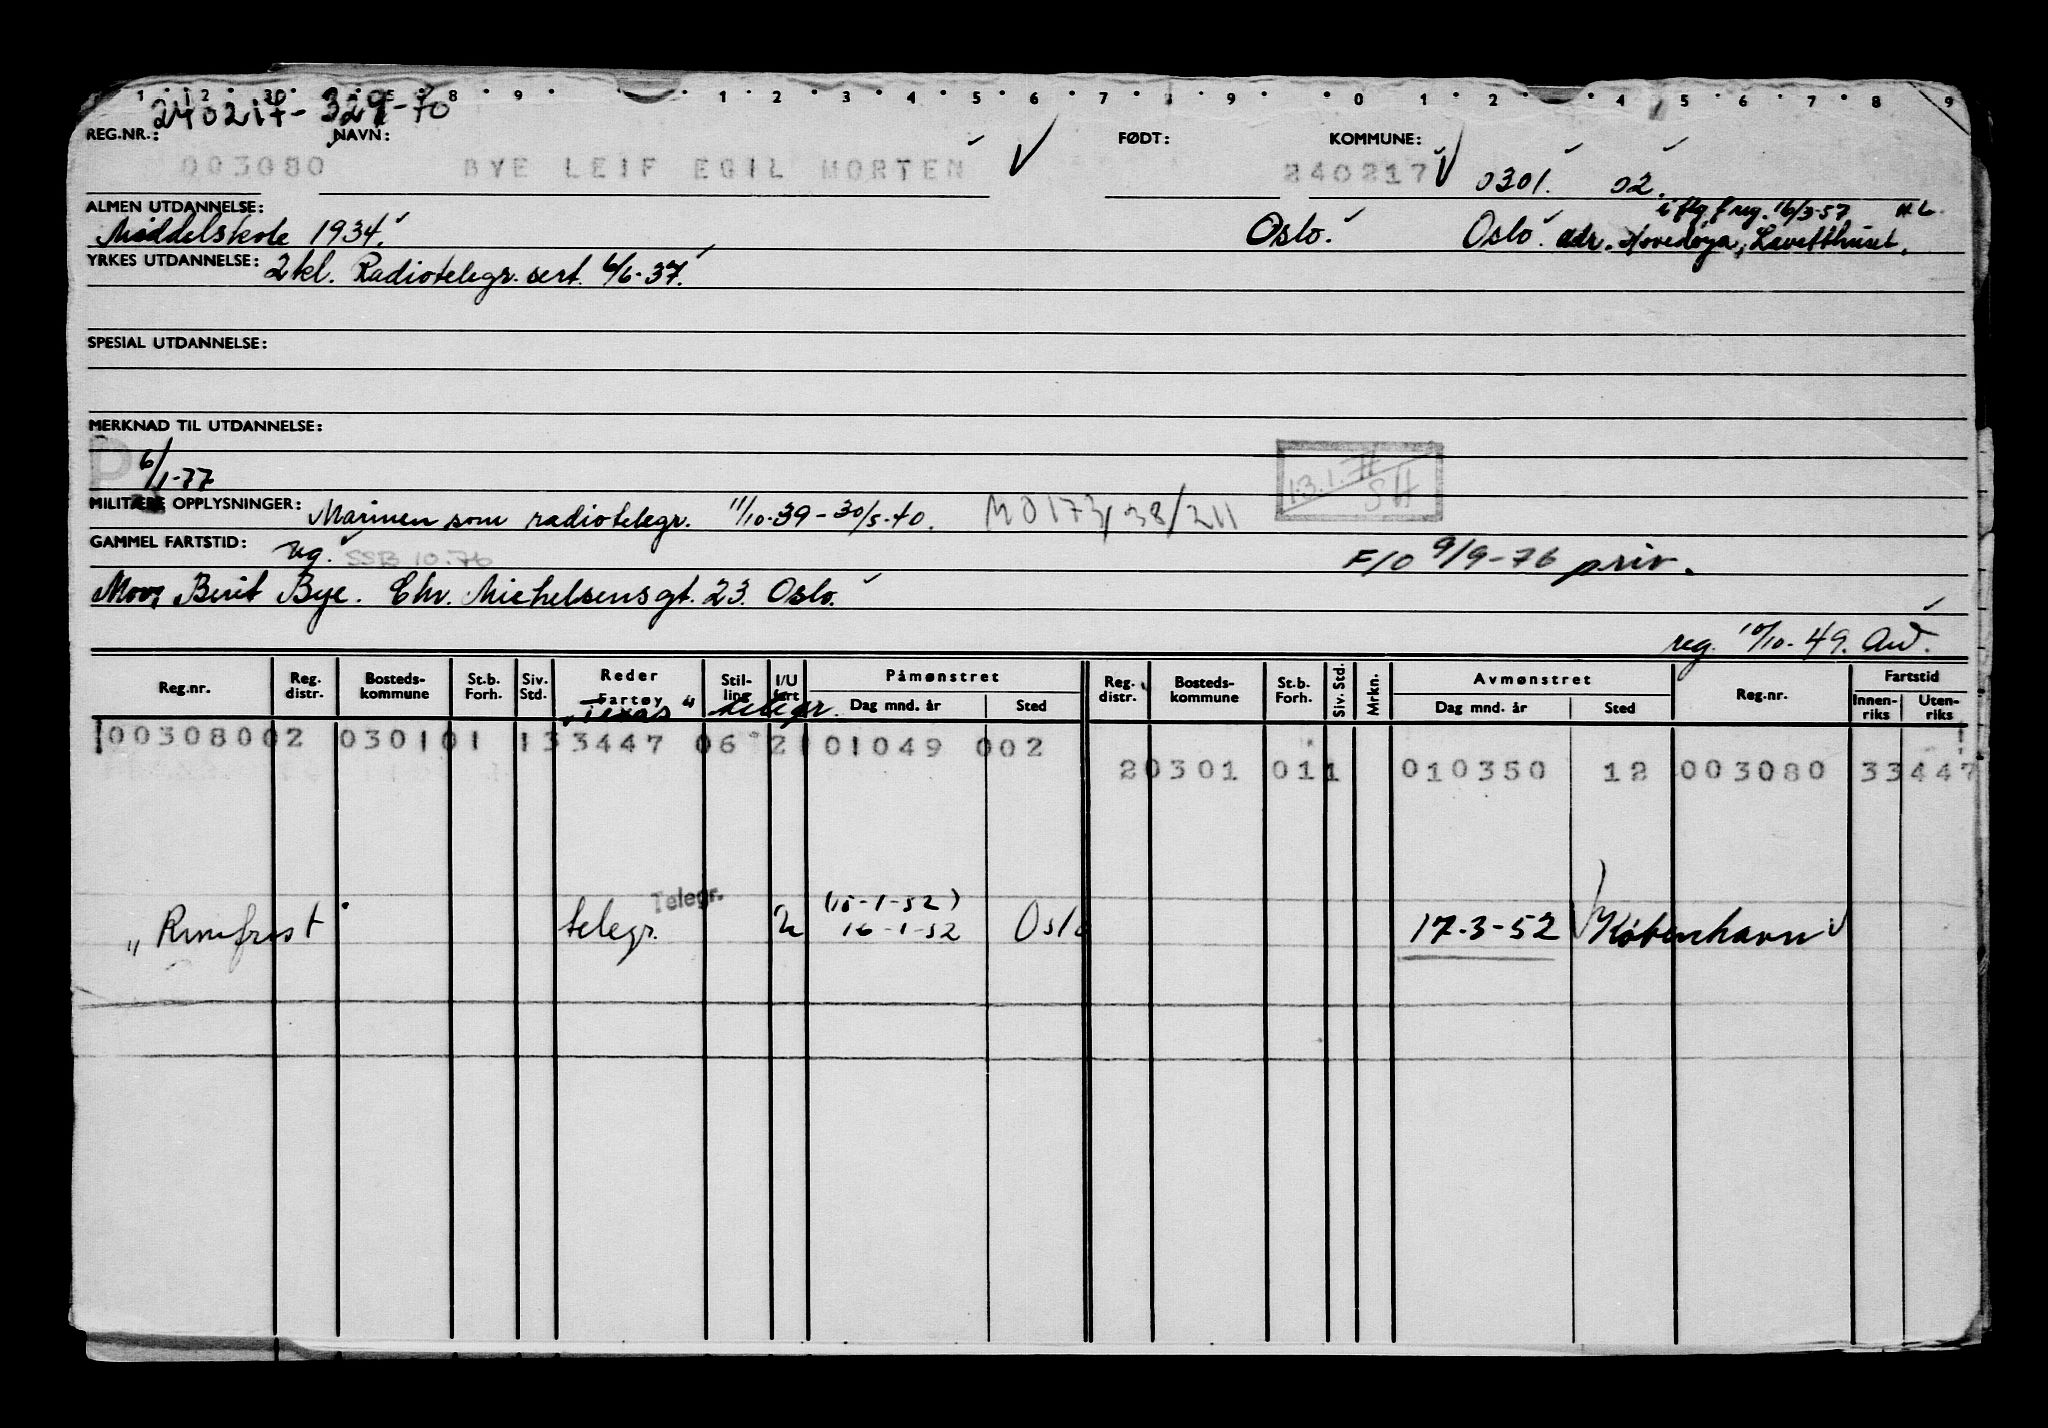 240217-32970
REG.NR.: NAVN: FØDT: KOMMUNE:
003080 BYE LEIF EGIL MORTEN 240217 0301. 02.
ALMEN UTDANNELSE: i flg. f reg. 16/3-57
Middelskole 1934. Oslo. Oslo. adr. Hovedøya, Lavetthuset.
YRKES UTDANNELSE: 2 kl. Radiotelegr. sert. 6/6-37.
SPESIAL UTDANNELSE:
MERKNAD TIL UTDANNELSE:
P 6/1-77
13.1. SH
MILITÆRE OPPLYSNINGER: Marinen som radiotelegr. 11/10-39-30/5-40. MO173/38/211
GAMMEL FARTSTID: ug. SSB 10.76 F/O 9/9-76 priv.
Mor: Berit Bye. Chr. Michelsensgt. 23. Oslo.
reg. 10/10-49. Aud.
Reg.nr. Reg. distr. Bosteds- kommune St.b. Forh. Siv. Std. Reder Fartøy Stil- ling I/U fart Påmønstret Dag mnd. år Sted Reg. distr. Bosteds- kommune St.b. Forh. Siv. Std. Mrkn. Avmønstret Dag mnd. år Sted Reg.nr. Fartstid Innen- riks Uten- riks
"Texas" telegr.
00308002 030101 133447 06 2 01049 002
20301 011 010350 12 003080 33447
Telegr. (15-1-52)
"Rimfrost" telegr. 2 16-1-52 Oslo 17-3-52 København